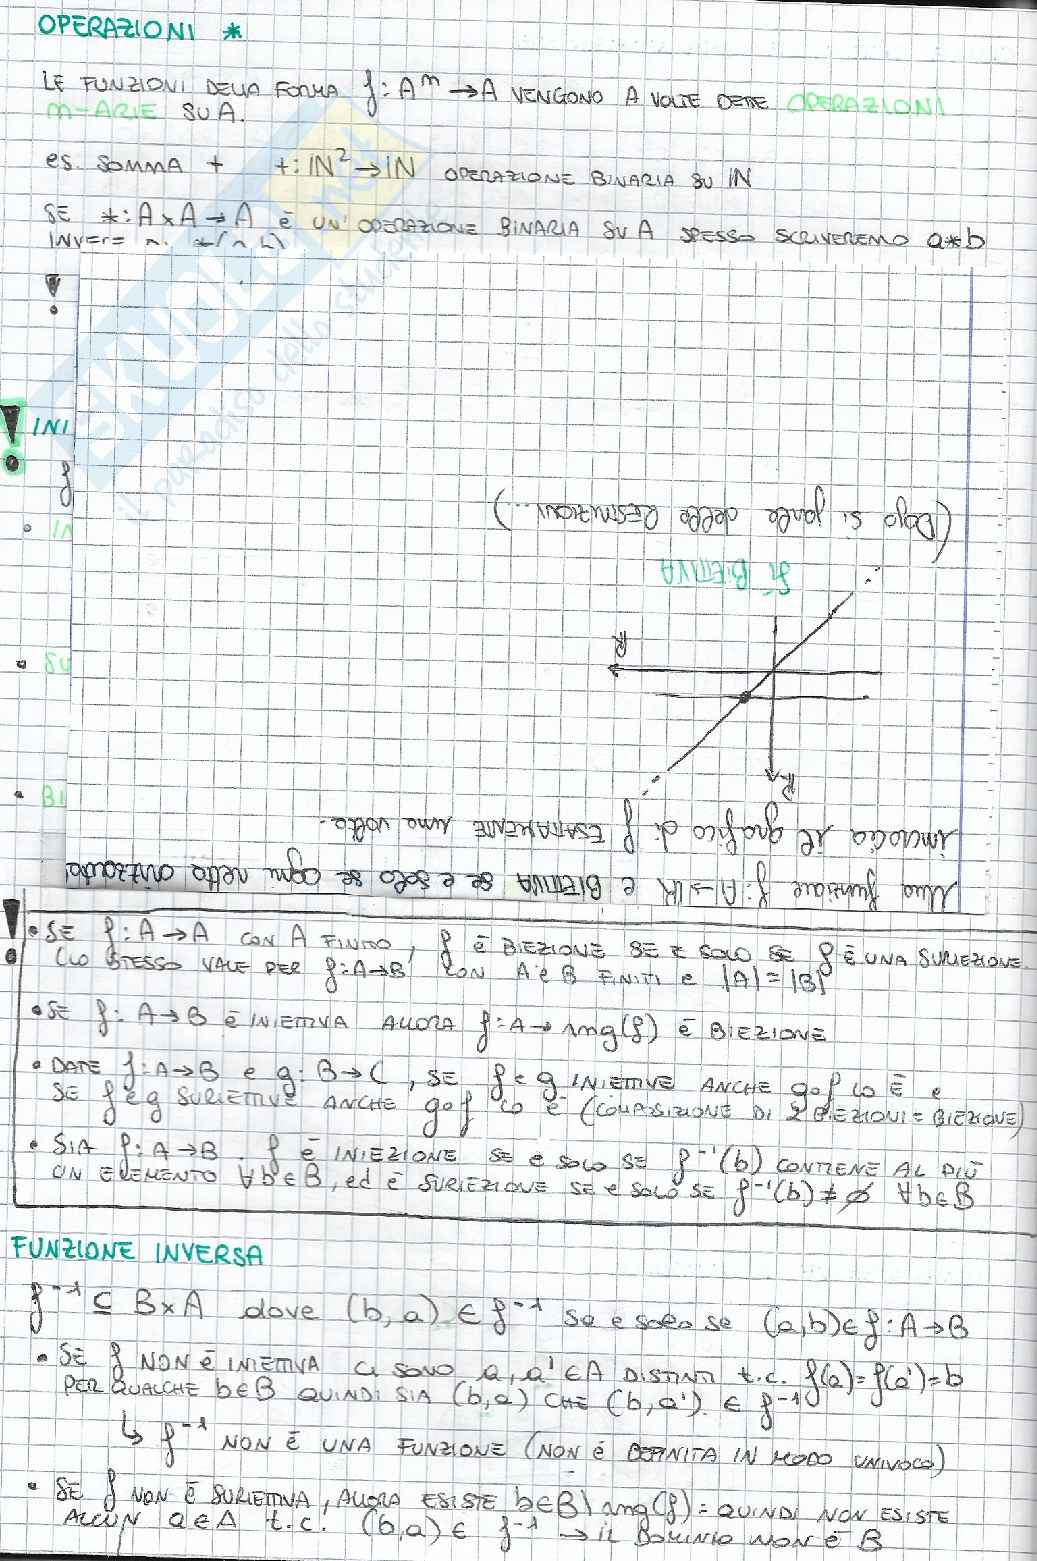 OPERAZIONI *
LE FUNZIONI DELLA FORMA f: Aᵐ → A VENGONO A VOLTE DETTE OPERAZIONI
m-ARIE SU A.
es. SOMMA + +: ℕ² → ℕ OPERAZIONE BINARIA SU ℕ
SE *: A×A → A È UN' OPERAZIONE BINARIA SU A SPESSO SCRIVEREMO a*b
!
! INI
f
• IN
• SU
• BI
Una funzione f: A → ℝ e BIETTIVA se e solo se ogni retta orizzontale
incrocia il grafico di f ESATTAMENTE una volta.
R
R
SI BIETTIVA
(Dopo si parla delle RESTRIZIONI...)
! • SE f: A → A CON A FINITO, f È BIEZIONE SE E SOLO SE f È UNA SURIEZIONE.
(LO STESSO VALE PER f: A → B CON A e B FINITI e |A| = |B|
• SE f: A → B È INIETTIVA ALLORA f: A → rng(f) È BIEZIONE
• DATE f: A → B e g: B → C, SE f e g INIETTIVE ANCHE g∘f LO È e
SE f e g SURIETTIVE ANCHE g∘f LO È (COMPOSIZIONE DI 2 BIEZIONI = BIEZIONE)
• SIA f: A → B. f È INIEZIONE SE e SOLO SE f⁻¹(b) CONTIENE AL PIÙ
UN ELEMENTO ∀b∈B, ed È SURIEZIONE SE e SOLO SE f⁻¹(b) ≠ ∅ ∀b∈B
FUNZIONE INVERSA
f⁻¹ ⊆ B×A dove (b,a) ∈ f⁻¹ se e solo se (a,b) ∈ f: A → B
• SE f NON È INIETTIVA CI SONO a, a' ∈ A DISTINTI t.c. f(a) = f(a') = b
PER QUALCHE b∈B QUINDI SIA (b,a) CHE (b,a') ∈ f⁻¹
↳ f⁻¹ NON È UNA FUNZIONE (NON È DEFINITA IN MODO UNIVOCO)
• SE f NON È SURIETTIVA, ALLORA ESISTE b∈B\rng(f) = QUINDI NON ESISTE
ALCUN a∈A t.c. (b,a) ∈ f⁻¹ → IL DOMINIO NON È B